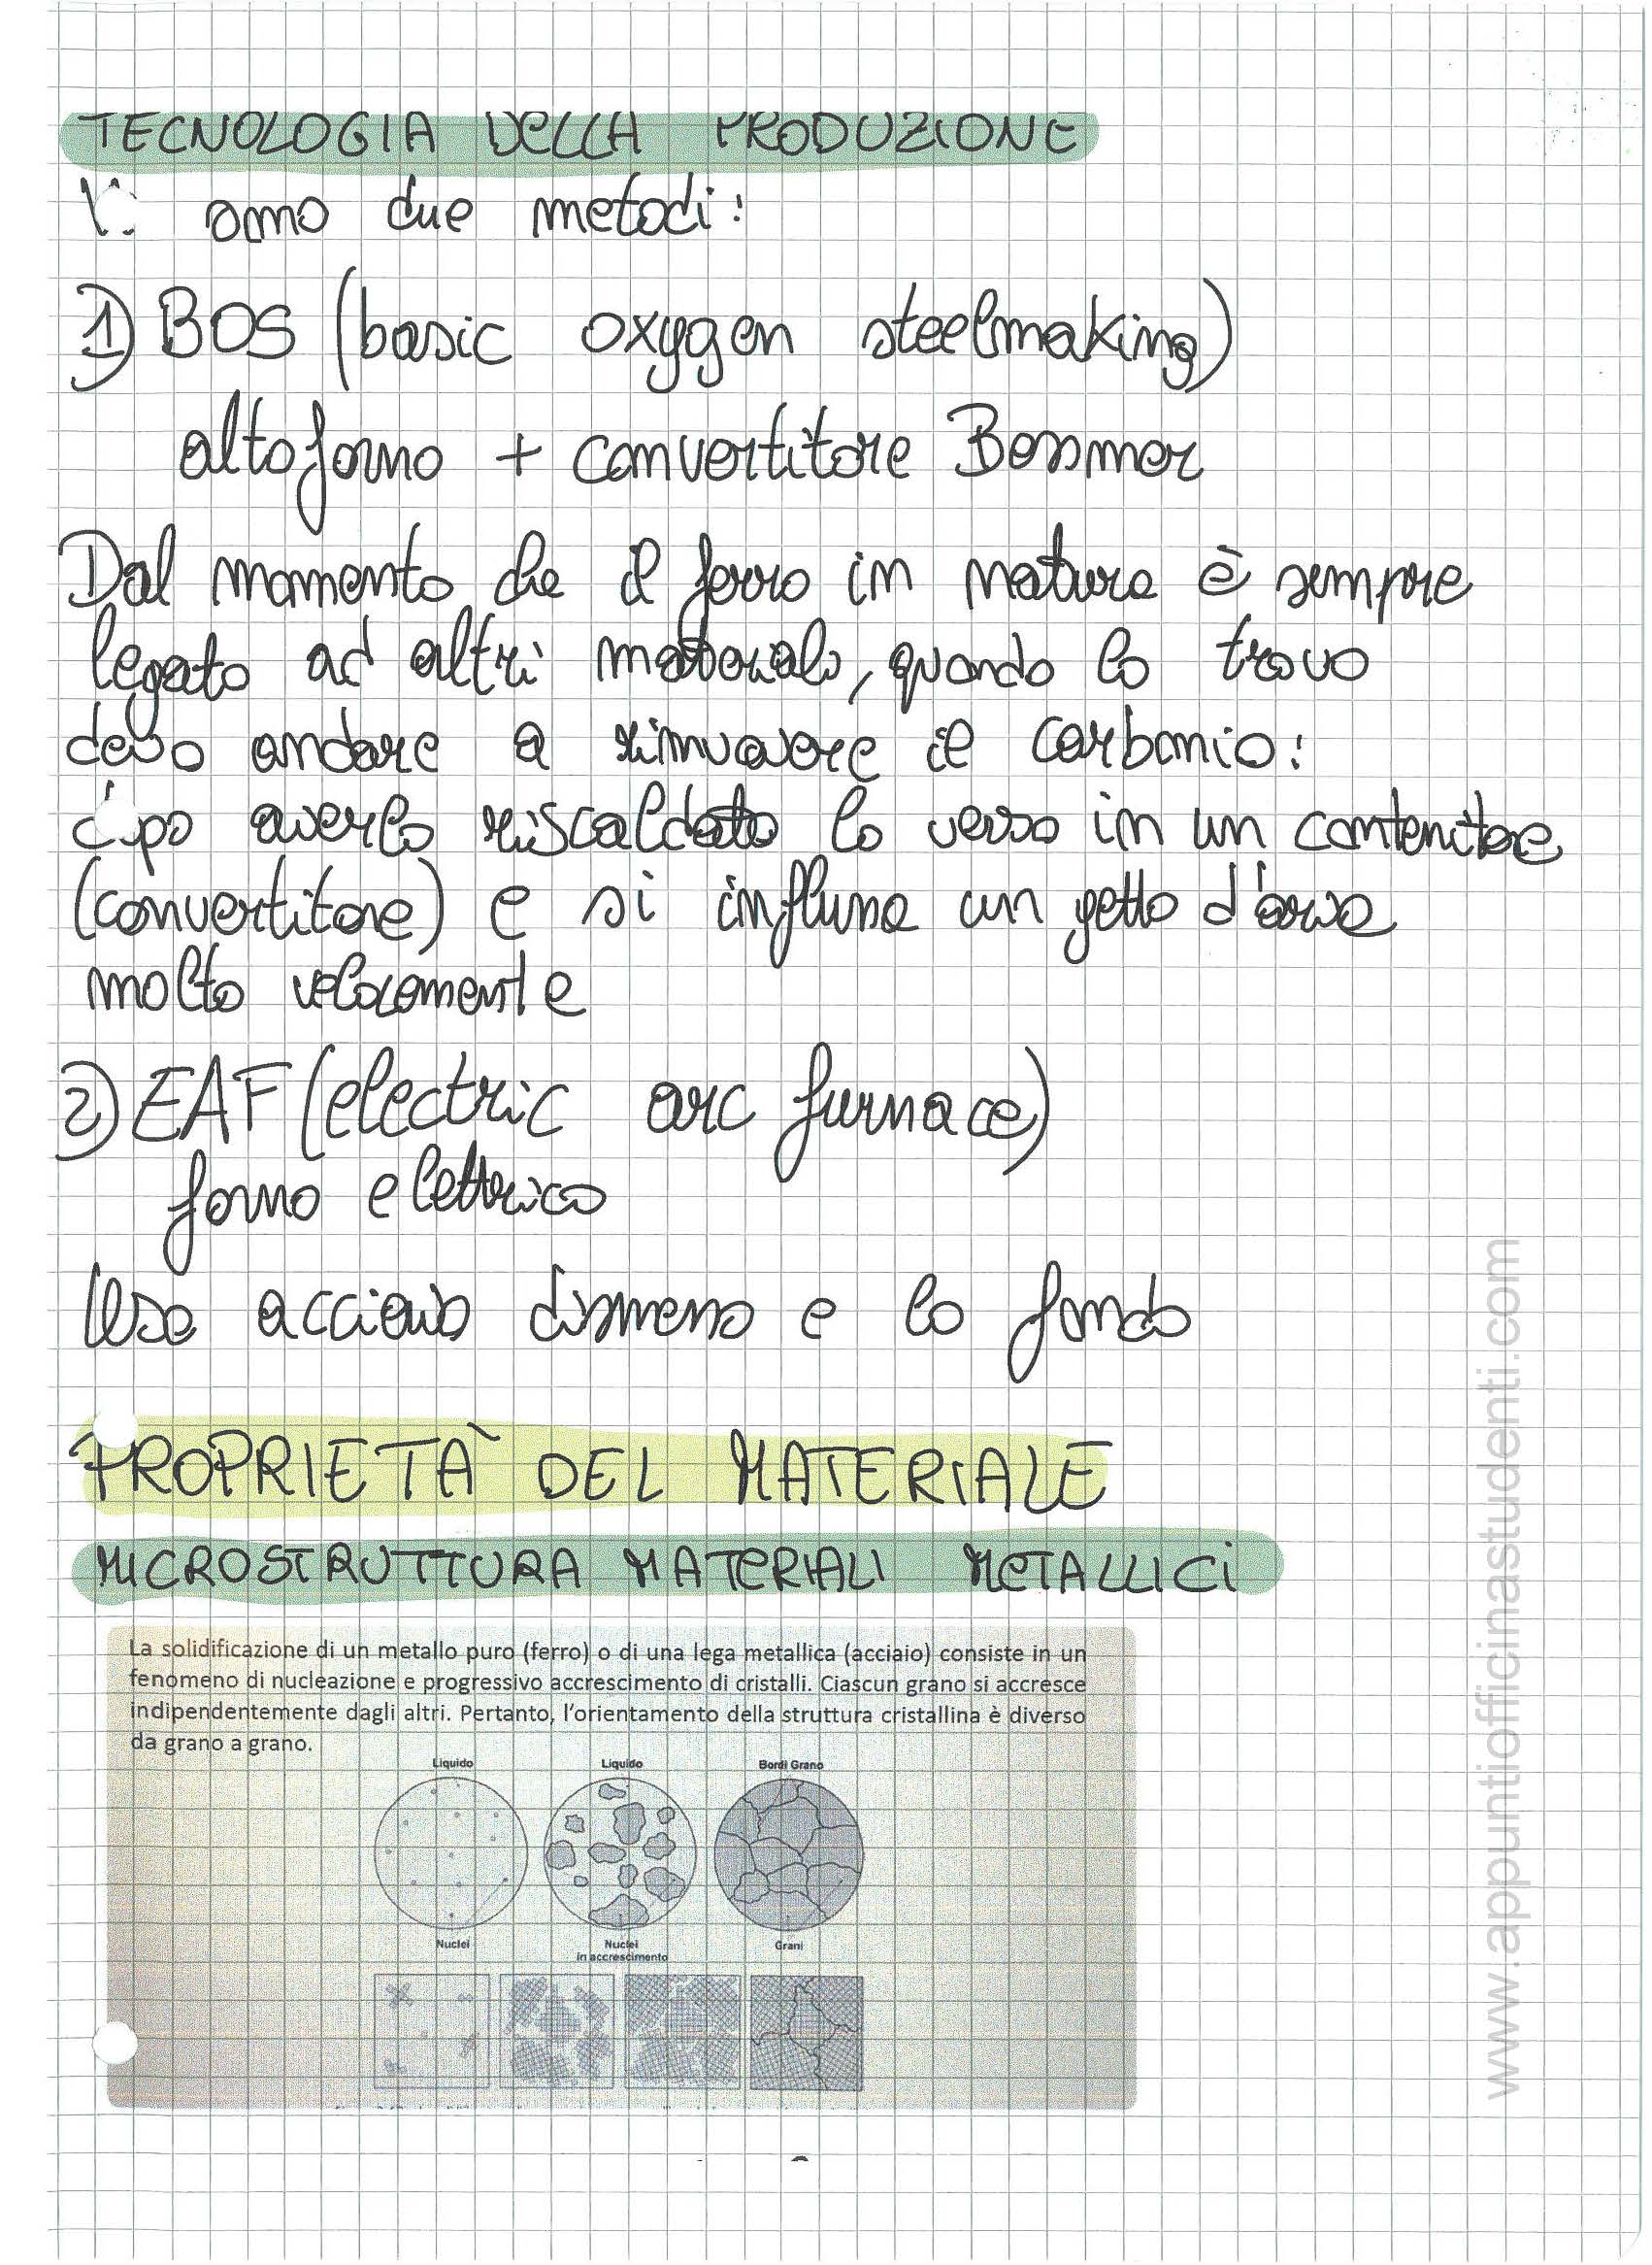 TECNOLOGIA DELLA PRODUZIONE
sono due metodi:
1) BOS (basic oxygen steelmaking)
altoforno + convertitore Bessmer
Dal momento che il ferro in natura è sempre
legato ad altri materiali, quando lo trovo
devo andare a rimuovere il carbonio:
dopo averlo riscaldato lo verso in un contenitore
(convertitore) e si influna un getto d'aria
molto velocemente
2) EAF (electric arc furnace)
forno elettrico
Uso acciaio dismesso e lo fondo
PROPRIETÀ DEL MATERIALE
MICROSTRUTTURA MATERIALI METALLICI
La solidificazione di un metallo puro (ferro) o di una lega metallica (acciaio) consiste in un
fenomeno di nucleazione e progressivo accrescimento di cristalli. Ciascun grano si accresce
indipendentemente dagli altri. Pertanto, l'orientamento della struttura cristallina è diverso
da grano a grano.
Liquido Liquido Bordi Grano
Nuclei Nuclei Grani
in accrescimento
www.appuntiofficinastudenti.com